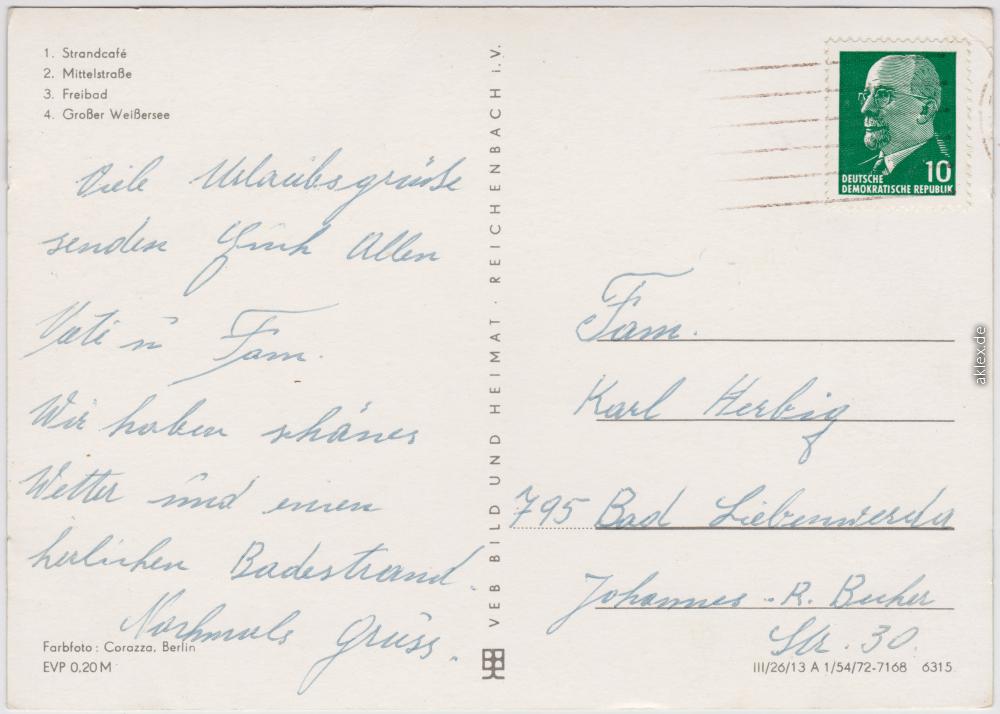 1. Strandcafé
2. Mittelstraße
3. Freibad
4. Großer Weißersee
Viele Urlaubsgrüße
senden Euch Allen
Vati u Fam.
Wir haben schönes
Wetter und einen
herlichen Badestrand.
Nochmals Grüss.
Farbfoto: Corazza, Berlin
EVP 0,20 M
VEB BILD UND HEIMAT · REICHENBACH i. V.
10
DEUTSCHE
DEMOKRATISCHE REPUBLIK
Fam.
Karl Herbig
795 Bad Liebenwerda
Johannes - R. Becher
Str. 30.
III/26/13 A 1/54/72-7168 6315
aklex.de